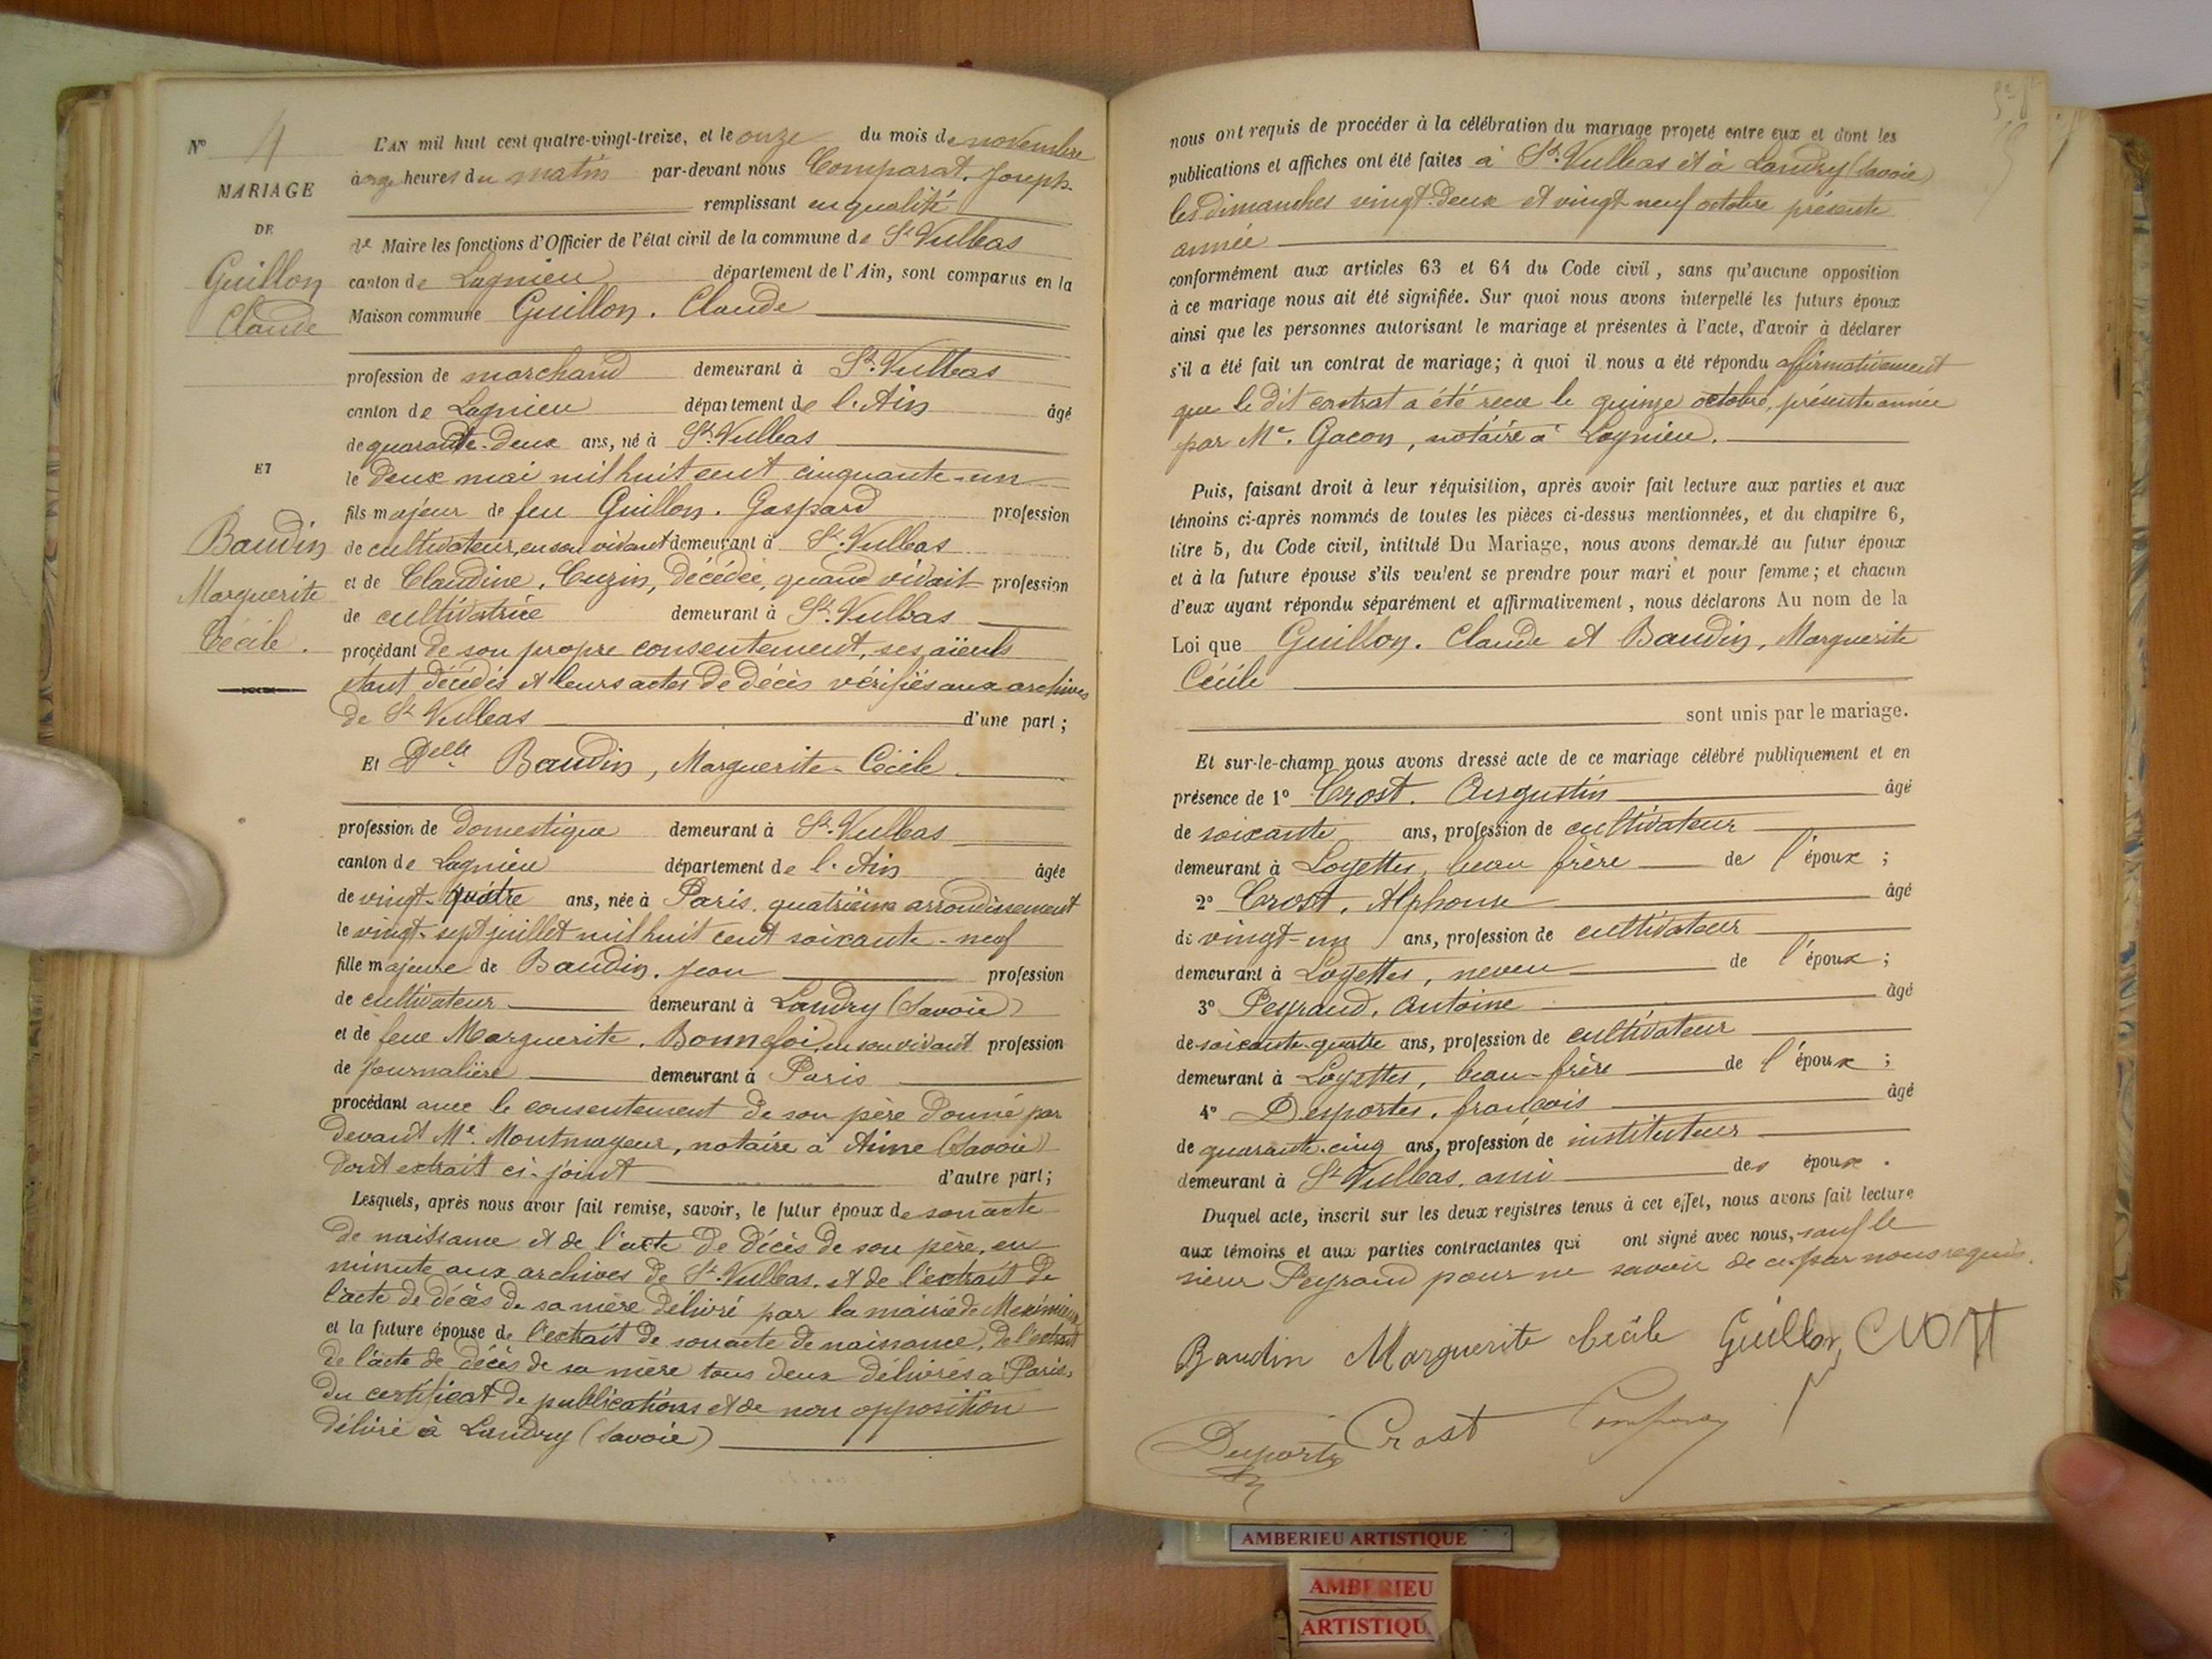 N° 4
MARIAGE
DE
Guillon
Claude
ET
Baudin
Marguerite
Cécile.
L'AN mil huit cent quatre-vingt-treize, et le onze du mois de novembre
à onze heures du matin par-devant nous Comparat, Joseph
remplissant en qualité
de Maire les fonctions d'Officier de l'état civil de la commune de St Vulbas
canton de Lagnieu département de l'Ain, sont comparus en la
Maison commune Guillon. Claude
profession de marchand demeurant à St. Vulbas
canton de Lagnieu département de l'Ain âgé
de quarante-deux ans, né à St. Vulbas
le deux mai mil huit cent cinquante-un
fils majeur de feu Guillon. Gaspard profession
de cultivateur, en son vivant demeurant à St. Vulbas
et de Claudine, Cuzin, décédée, quand vivait profession
de cultivatrice demeurant à St. Vulbas
procédant de son propre consentement, ses aïeuls
étant décédés et leurs actes de décès vérifiés aux archives
de St Vulbas d'une part;
Et Delle Baudin, Marguerite-Cécile
profession de domestique demeurant à St. Vulbas
canton de Lagnieu département de l'Ain âgée
de vingt-quatre ans, née à Paris, quatrième arrondissement
le vingt-sept juillet mil huit cent soixante-neuf
fille majeure de Baudin. Jean profession
de cultivateur demeurant à Landry (Savoie)
et de feue Marguerite. Bonnefoi, en son vivant profession
de journalière demeurant à Paris
procédant avec le consentement de son père donné par
devant Me. Montmayeur, notaire à Aime (Savoie)
dont extrait ci-joint d'autre part;
Lesquels, après nous avoir fait remise, savoir, le futur époux de son acte
de naissance et de l'acte de décès de son père, en
minute aux archives de St. Vulbas, et de l'extrait de
l'acte de décès de sa mère délivré par la mairie de Meximieux
et la future épouse de l'extrait de son acte de naissance, de l'extrait
de l'acte de décès de sa mère tous deux délivrés à Paris,
du certificat de publications et de non opposition
délivré à Landry (Savoie)
nous ont requis de procéder à la célébration du mariage projeté entre eux et dont les
publications et affiches ont été faites à St. Vulbas et à Landry (Savoie)
les dimanches vingt-deux et vingt-neuf octobre présente
année
conformément aux articles 63 et 64 du Code civil, sans qu'aucune opposition
à ce mariage nous ait été signifiée. Sur quoi nous avons interpellé les futurs époux
ainsi que les personnes autorisant le mariage et présentes à l'acte, d'avoir à déclarer
s'il a été fait un contrat de mariage; à quoi il nous a été répondu affirmativement
que le dit contrat a été reçu le quinze octobre, présente année
par Me. Gacon, notaire à Lagnieu.
Puis, faisant droit à leur réquisition, après avoir fait lecture aux parties et aux
témoins ci-après nommés de toutes les pièces ci-dessus mentionnées, et du chapitre 6,
titre 5, du Code civil, intitulé Du Mariage, nous avons demandé au futur époux
et à la future épouse s'ils veulent se prendre pour mari et pour femme; et chacun
d'eux ayant répondu séparément et affirmativement, nous déclarons Au nom de la
Loi que Guillon. Claude et Baudin, Marguerite
Cécile
sont unis par le mariage.
Et sur-le-champ nous avons dressé acte de ce mariage célébré publiquement et en
présence de 1° Crost. Augustin âgé
de soixante ans, profession de cultivateur
demeurant à Loyettes, beau frère de l'époux;
2° Crost, Alphonse âgé
de vingt-un ans, profession de cultivateur
demeurant à Loyettes, neveu de l'époux;
3° Peyraud, Antoine âgé
de soixante-quatre ans, profession de cultivateur
demeurant à Loyettes, beau-frère de l'époux;
4° Desportes. françois âgé
de quarante-cinq ans, profession de instituteur
demeurant à St Vulbas, ami des époux.
Duquel acte, inscrit sur les deux registres tenus à cet effet, nous avons fait lecture
aux témoins et aux parties contractantes qui ont signé avec nous, sauf le
sieur Peyraud pour ne savoir de ce par nous requis.
Baudin Marguerite Cécile Guillon Crost
Desportes Crost Comparat
AMBERIEU ARTISTIQUE
AMBERIEU
ARTISTIQU